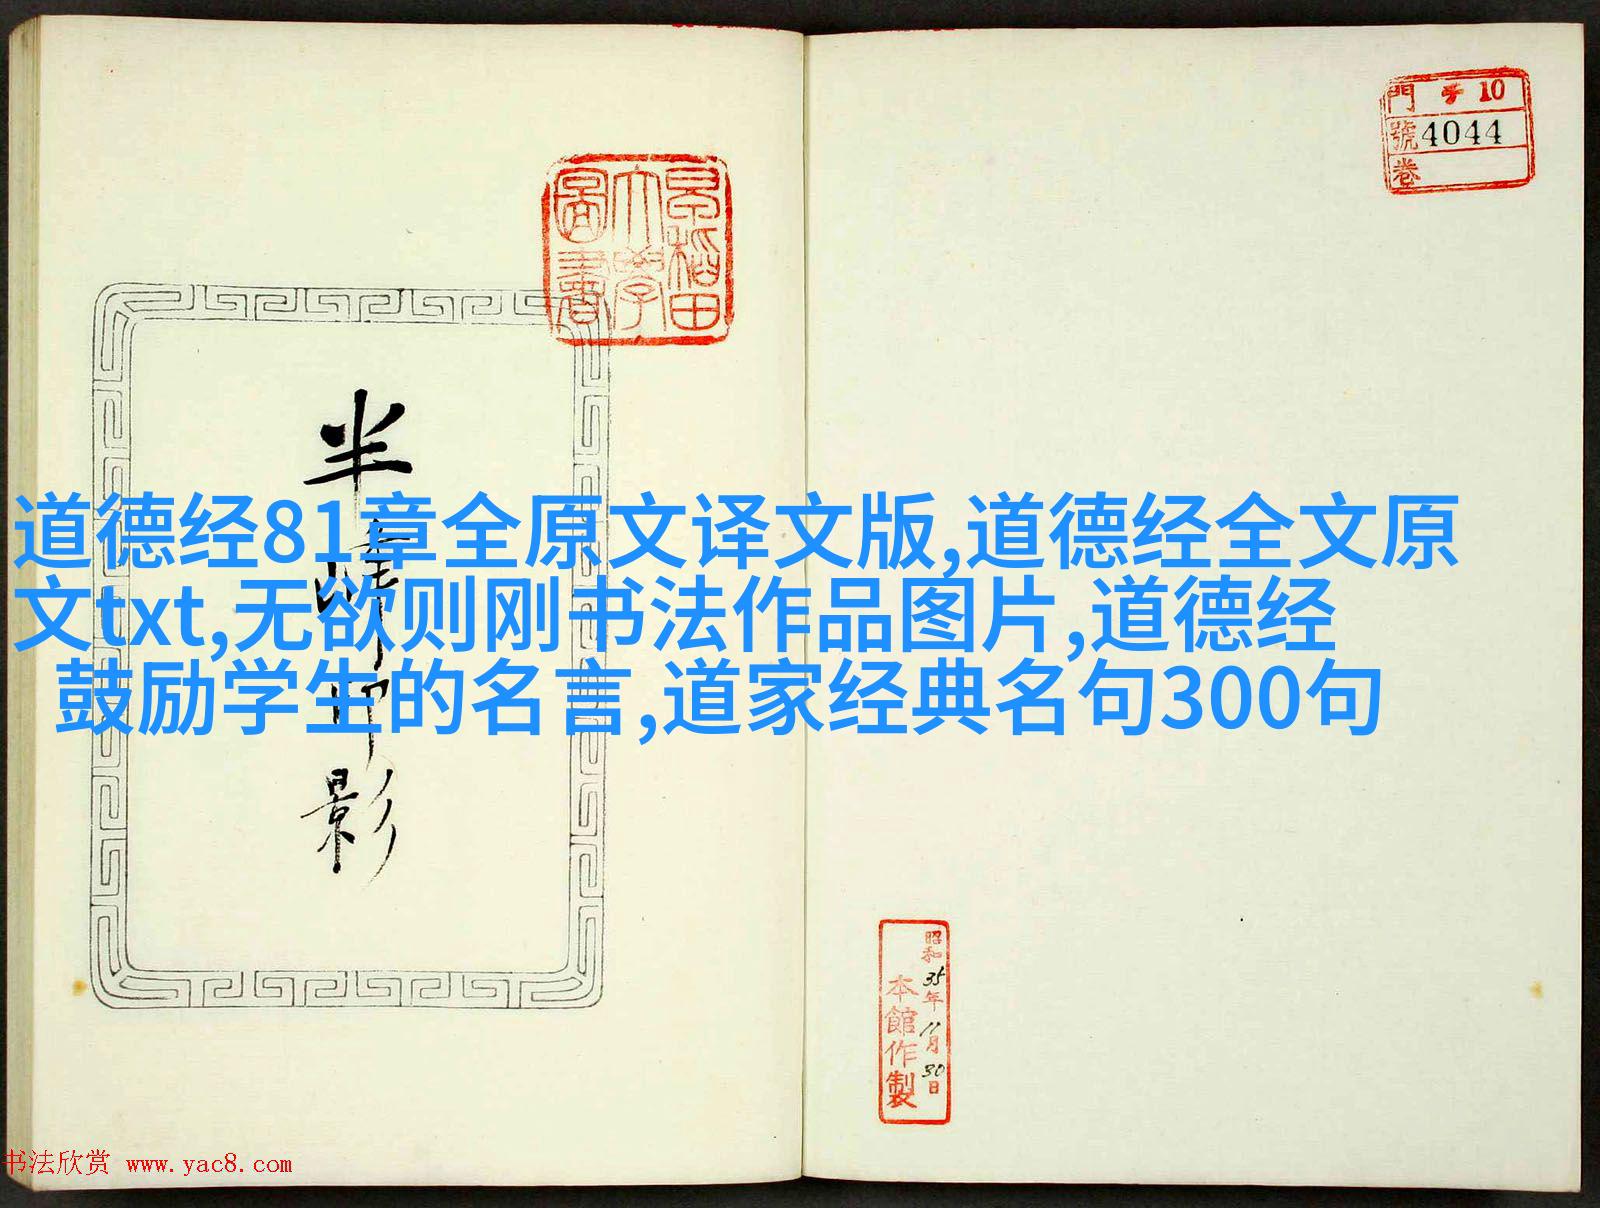 門 チ 10
號 4044
卷
早稲田
大學
圖書
道德经81章全原文译文版,道德经全文原
文txt,无欲则刚书法作品图片,道德经
鼓励学生的名言,道家经典名句300句
半
印
影
昭和35年11月30日
本館作製
书法欣赏 www.yac8.com